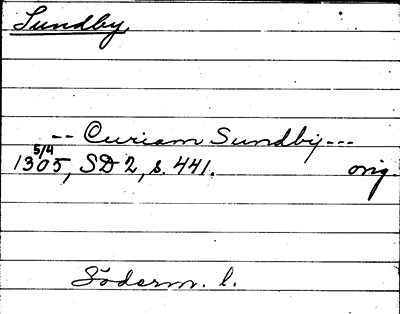 Sundby.
-- Curiam Sundby ---
1305 5/4, SD 2, s. 441. orig.
Söderm. l.